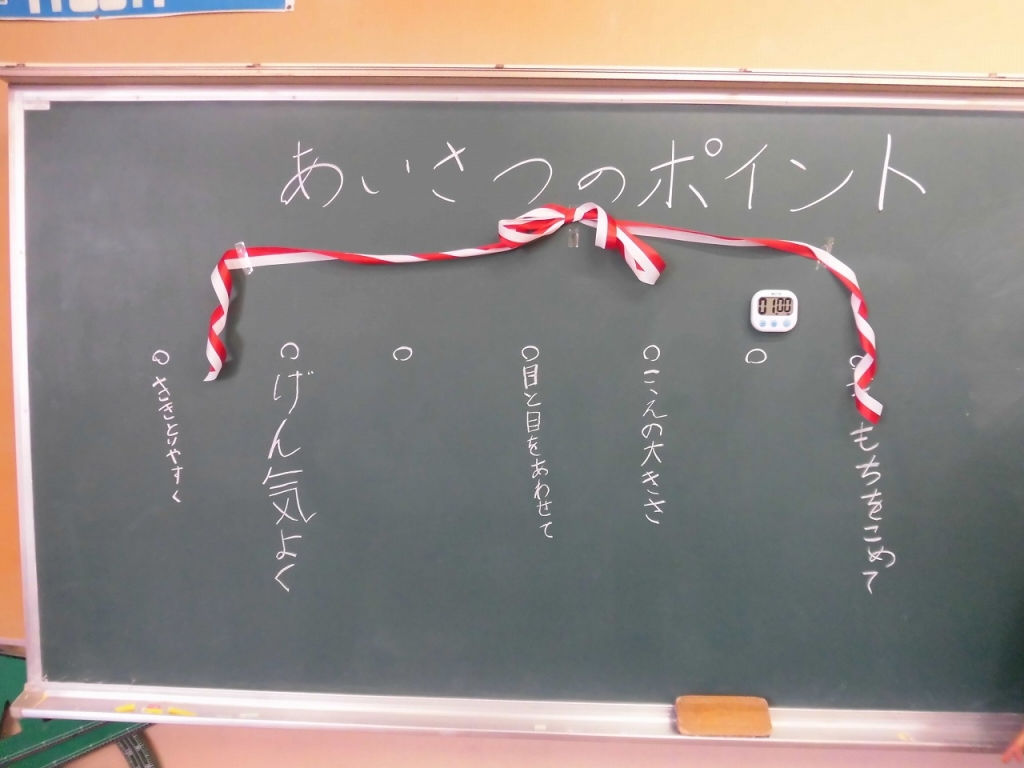 あいさつのポイント
01:00
もちをこめて
○
○こえの大きさ
○目と目をあわせて
○
○げん気よく
○さきとりやすく